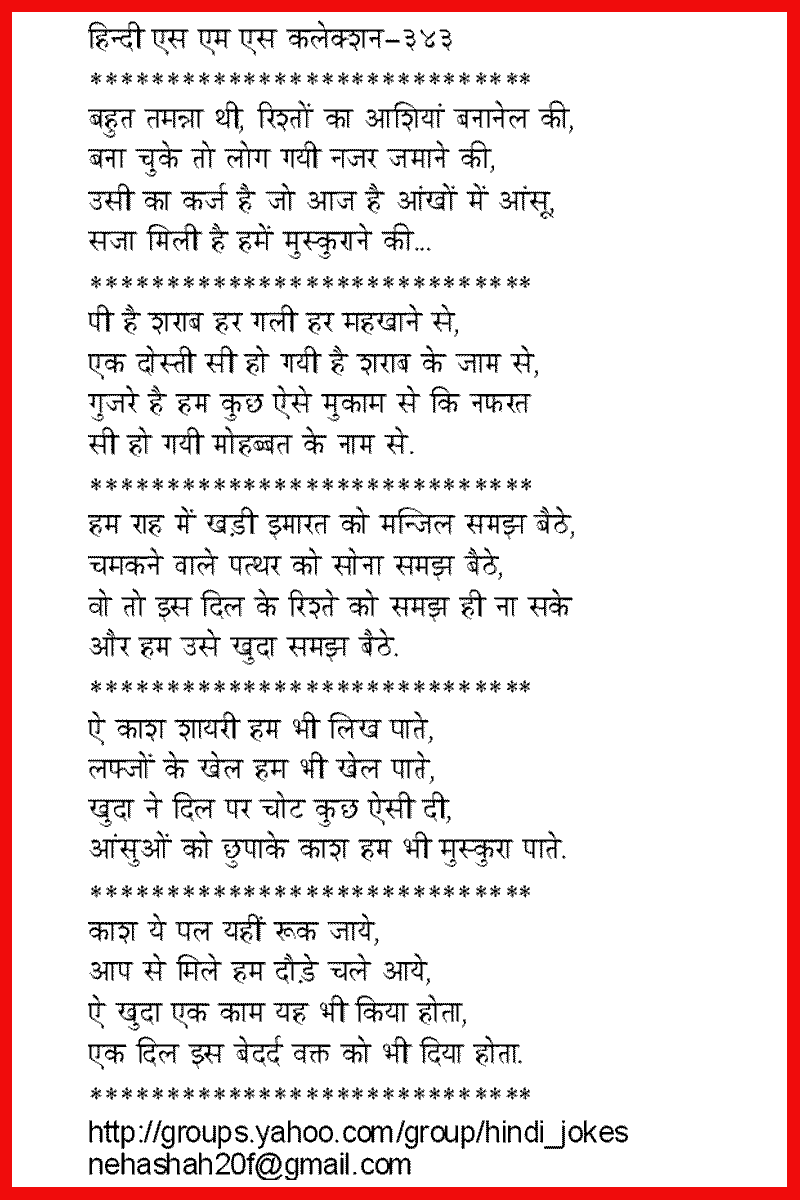 हिन्दी एस एम एस कलेक्शन-३४३
*****************************
बहुत तमन्ना थी, रिश्तों का आशियां बनानेल की,
बना चुके तो लोग गयी नजर जमाने की,
उसी का कर्ज है जो आज है आंखों में आंसू,
सजा मिली है हमें मुस्कुराने की...
*****************************
पी है शराब हर गली हर महखाने से,
एक दोस्ती सी हो गयी है शराब के जाम से,
गुजरे है हम कुछ ऐसे मुकाम से कि नफरत
सी हो गयी मोहब्बत के नाम से.
*****************************
हम राह में खड़ी इमारत को मन्जिल समझ बैठे,
चमकने वाले पत्थर को सोना समझ बैठे,
वो तो इस दिल के रिश्ते को समझ ही ना सके
और हम उसे खुदा समझ बैठे.
*****************************
ऐ काश शायरी हम भी लिख पाते,
लफ्जों के खेल हम भी खेल पाते,
खुदा ने दिल पर चोट कुछ ऐसी दी,
आंसुओं को छुपाके काश हम भी मुस्कुरा पाते.
*****************************
काश ये पल यहीं रूक जाये,
आप से मिले हम दौड़े चले आये,
ऐ खुदा एक काम यह भी किया होता,
एक दिल इस बेदर्द वक्त को भी दिया होता.
*****************************
http://groups.yahoo.com/group/hindi_jokes
nehashah20f@gmail.com